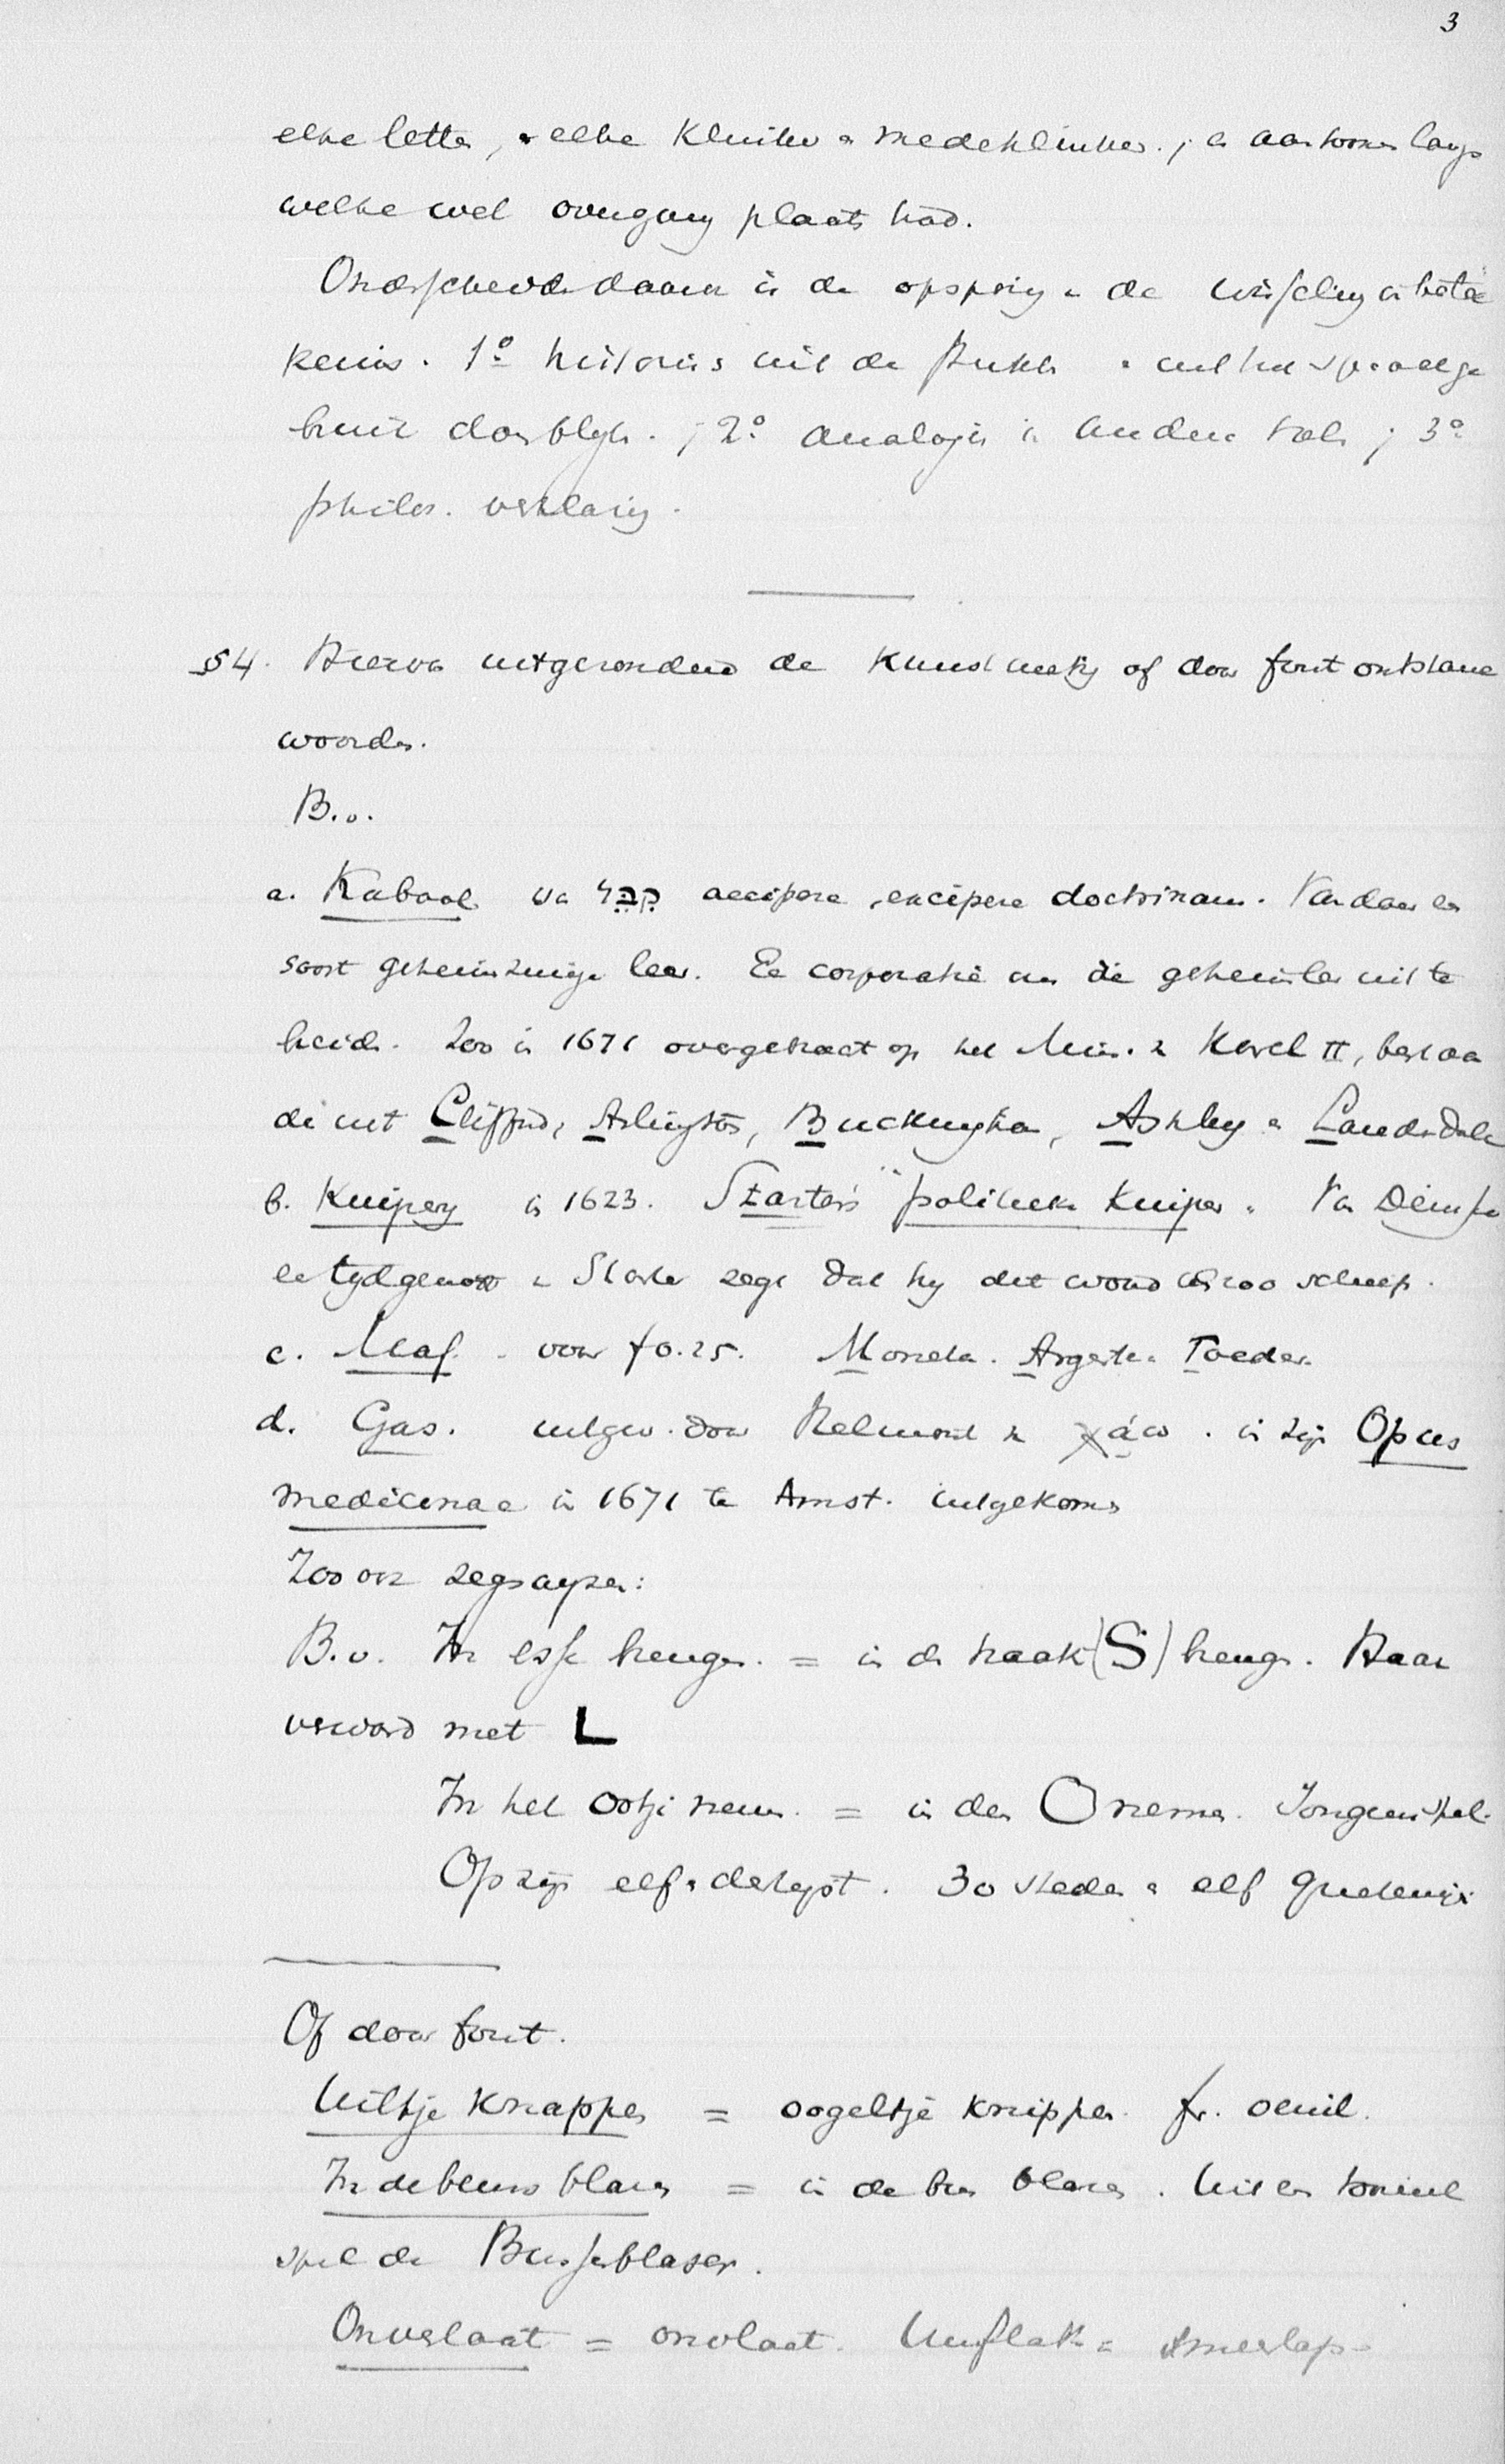 3
elke letter, elke klinker medeklinker; aantoonen langs
welke weg overgang plaats had.
Onderscheid daarin is de opspring de wisseling in betee
kenis. 1º historisch uit de uit het spraakge
bruik dat blijkt; 2º analogie in andere talen; 3º
philos. verklaring.
§4. Hiervan uitgezonderd de kunstmatig of door fout ontstane
woorden.
B.v.
a. Kabaal van קבל accipere, excipere doctrinam. Vandaar een
soort geheimzinnige leer. Een corporatie om die geheimleer uit te
breiden. Zoo in 1671 overgebracht op het Min. v. Karel II, bestaan
de uit Clifford, Arlington, Buckingham, Ashley en Lauderdale
b. Kuipery in 1623. Starters "politieke Kuiper. Van
een tydgenoot v Starter zegt dat hy dit woord zoo schiep.
c. Maf. voor f 0.25. Moneta. Argentea
d. Gas. uitgev. door Helmont v χάω. in zijn Opus
medicinae in 1671 te Amst. uitgekomen
Zoo ook zegswyzen:
B.v. In esse brengen = in de haak (S) brengen. Haak
verward met L
In het ootje nemen = in den O nemen. Jongensspel.
Op zijn elf en dertigst. 30 steden en elf grietenijen
Of door fout.
Uiltje knappen = oogeltje knippen. fr. oeuil.
In de beurs blazen = in de bus blazen. Uit een tooneel
spel de Bussenblaser.
Onverlaat = onvlaat. Unflath smeerlap